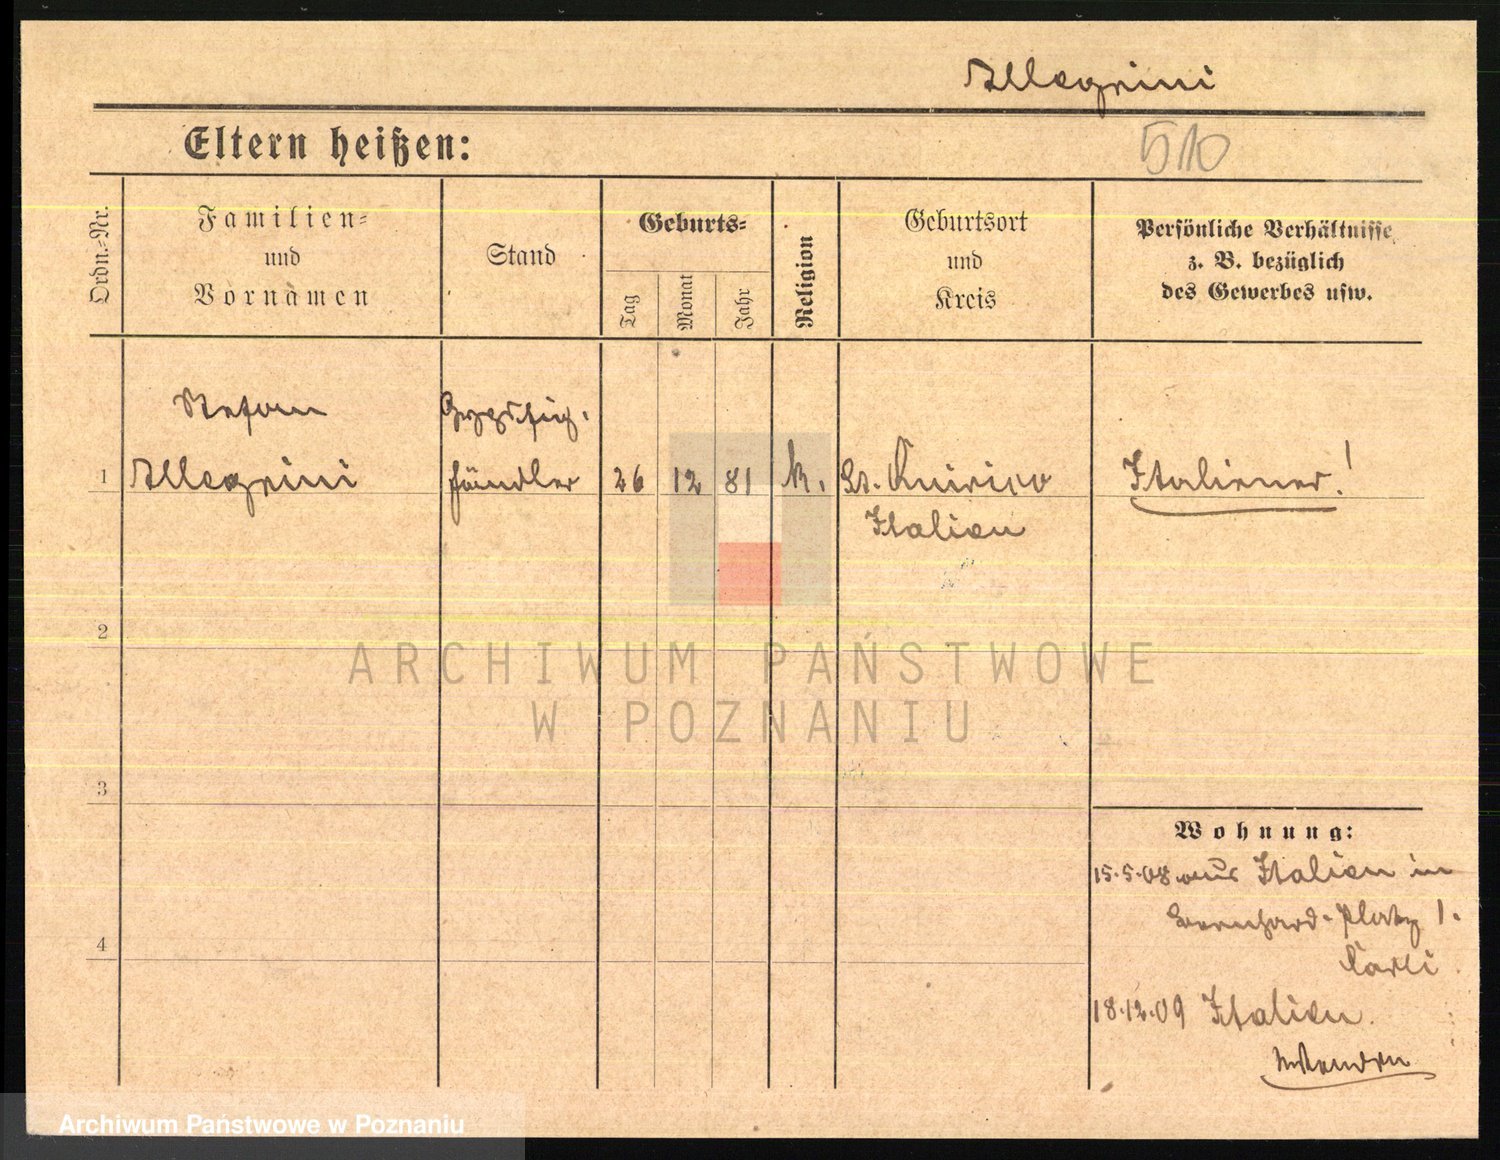 Allegrini
510
Eltern heißen:
Ordn.-Nr.
Familien-
und
Vornamen
Stand
Geburts-
Tag
Monat
Jahr
Religion
Geburtsort
und
Kreis
Persönliche Verhältnisse
z. B. bezüglich
des Gewerbes usw.
Stefan
Gypsfig.
1 Allegrini händler 26 12 81 k. St. Quirico Italiener!
Italien
2
ARCHIWUM PAŃSTWOWE
W POZNANIU
3
Wohnung:
15.5.08 aus Italien in
Bernhard-Platz 1.
4
18.12.09 Italien.
Archiwum Państwowe w Poznaniu